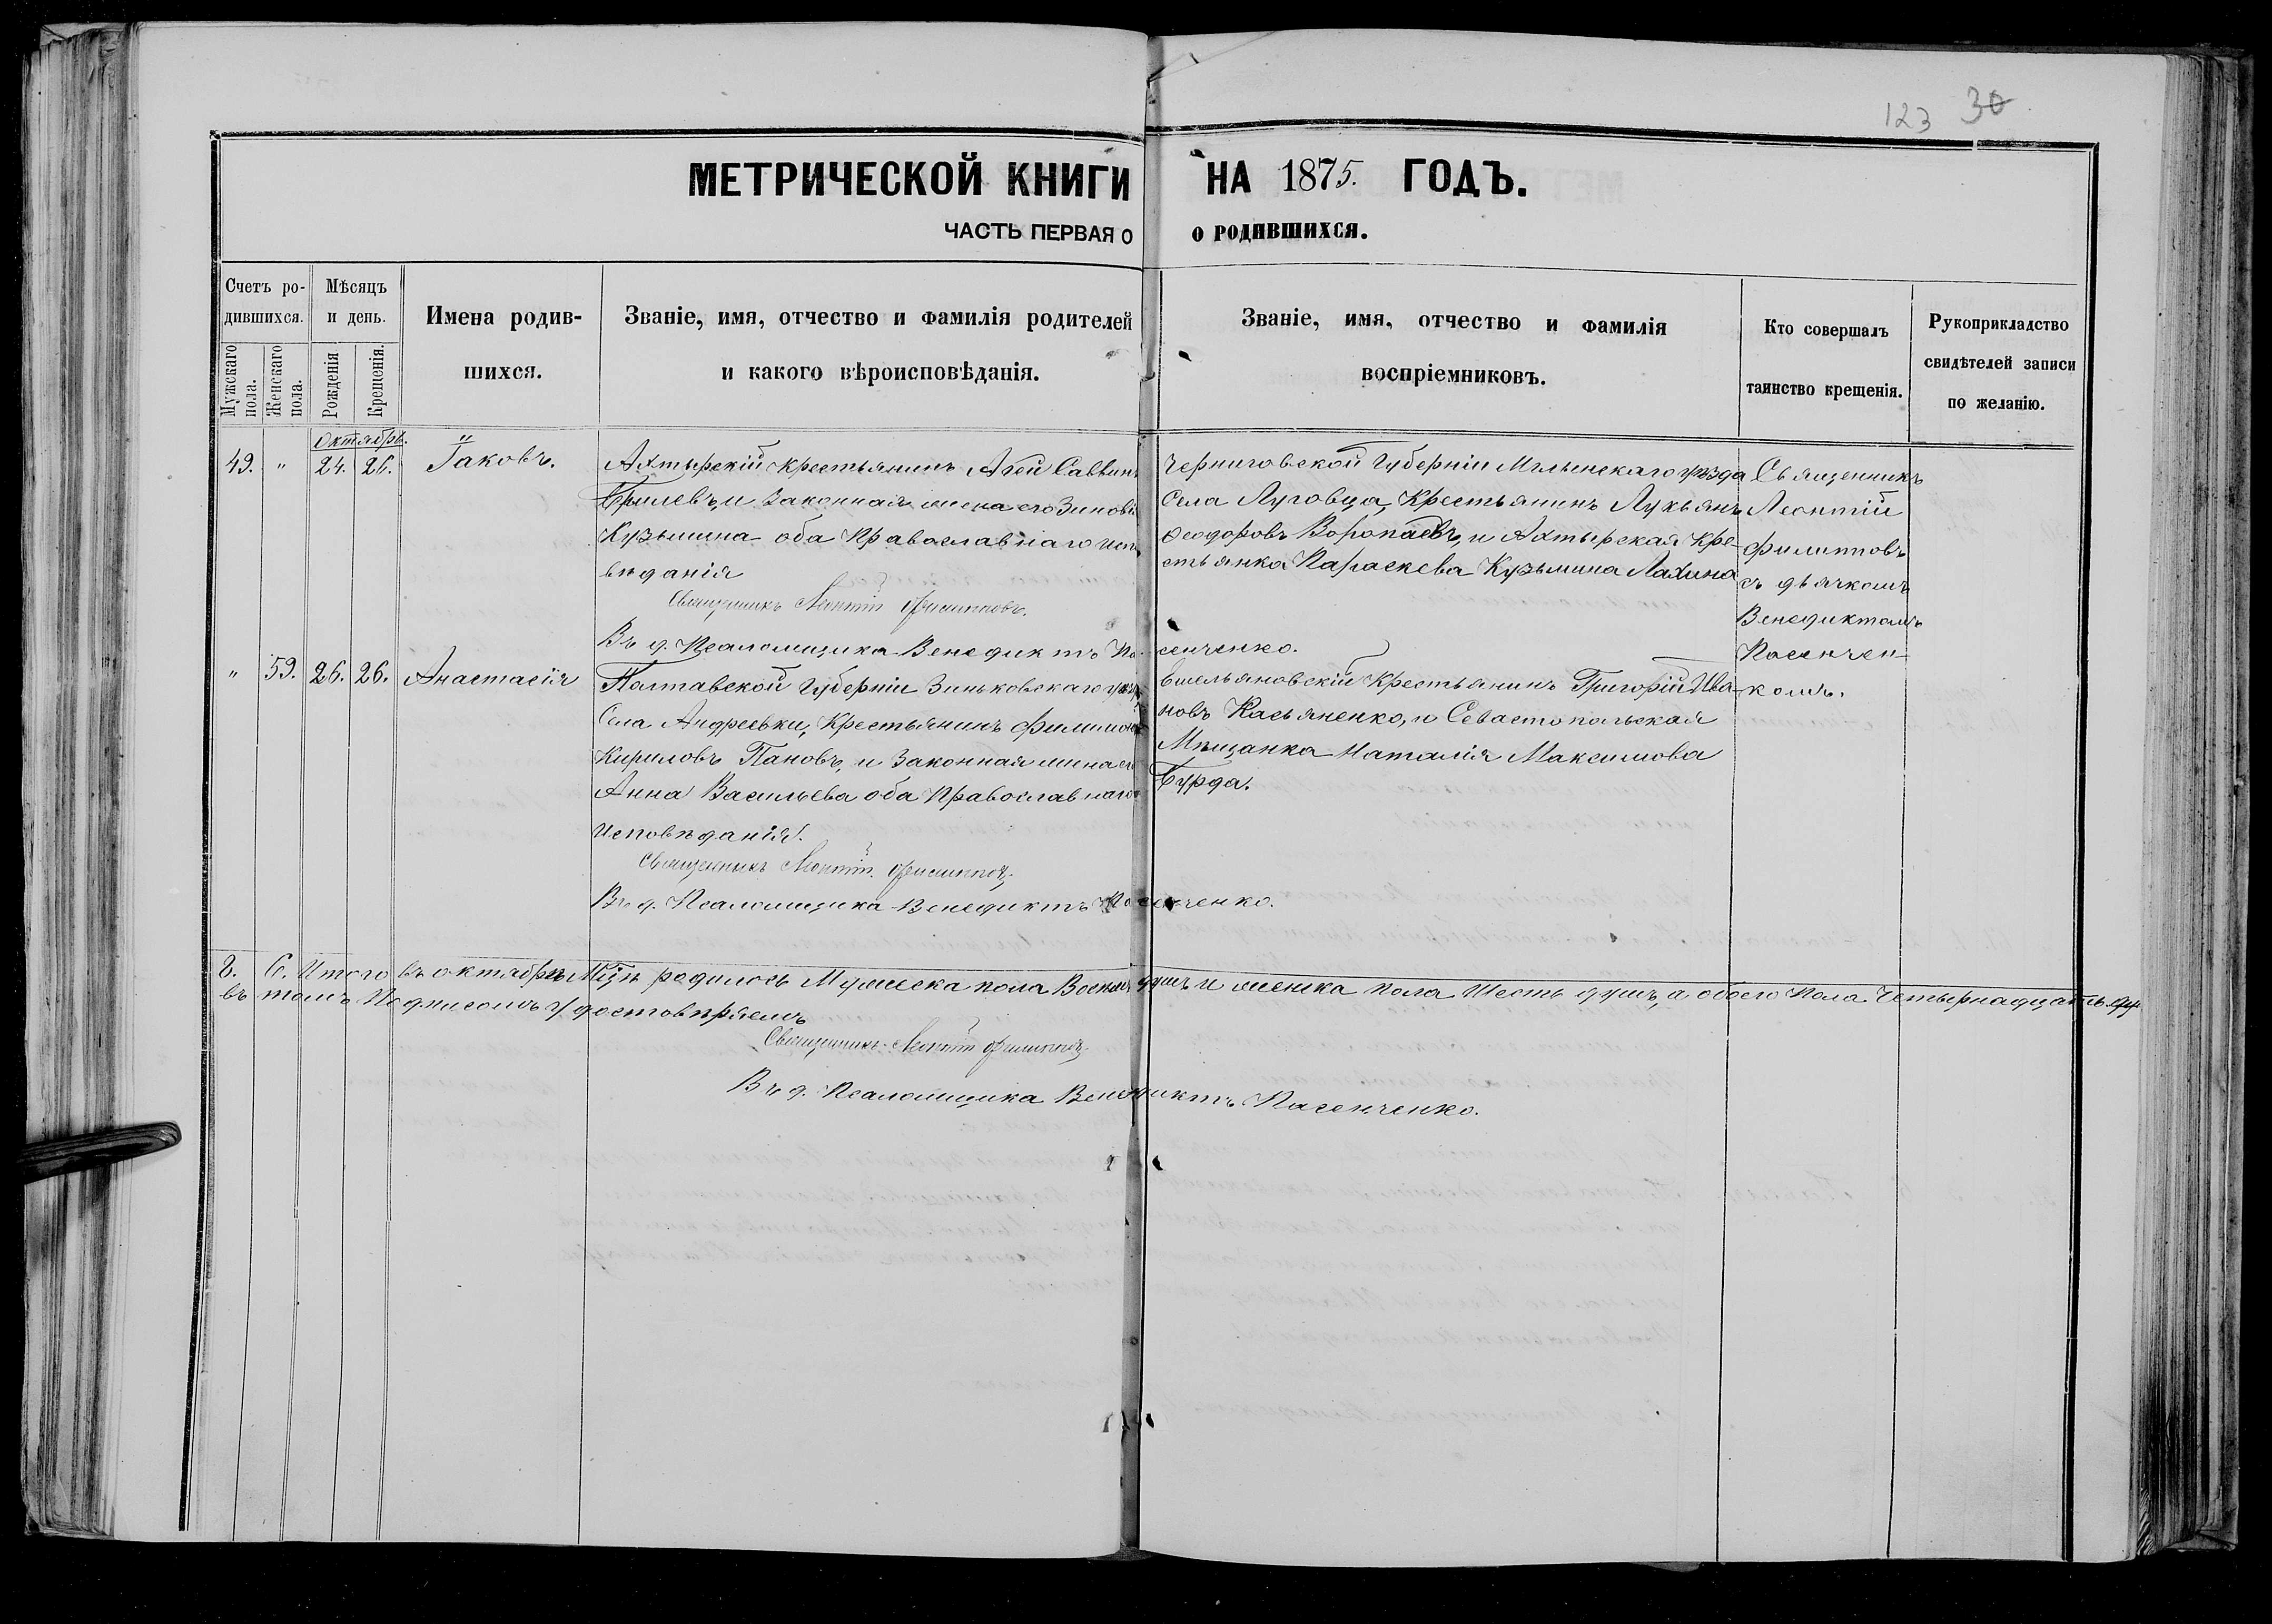 123 30
МЕТРИЧЕСКОЙ КНИГИ НА 1875. ГОДЪ.
ЧАСТЬ ПЕРВАЯ О О РОДИВШИХСЯ.
Счетъ ро-
дившихся.
Мужскаго
пола.
Женскаго
пола.
Мѣсяцъ
и день.
Рожденія
Крещенія.
Имена родив-
шихся.
Званіе, имя, отчество и фамилія родителей
и какого вѣроисповѣданія.
Званіе, имя, отчество и фамилія
воспріемниковъ.
Кто совершалъ
таинство крещенія.
Рукоприкладство
свидѣтелей записи
по желанію.
Октябрь.
49. " 24. 26. Іаковъ.
Ахтырскій крестьянинъ Агей Саввинъ
Брилевъ, и законная жена его Зиновія
Кузьмина оба Православнаго испо
вѣданія
Священникъ Леонтій Филипповъ.
Въ д. Псаломщика Венедиктъ Посенченко.
Черниговской Губерніи Мглинскаго уѣзда
Села Луговца, Крестьянинъ Лукьянъ
Феодоровъ Воропаевъ, и Ахтырская Кре-
стьянка Параскева Кузьмина Лахина
Священникъ
Леонтій
Филипповъ
съ дьячкомъ
Венедиктомъ
Посенчен-
комъ.
" 59. 26. 26. Анастасія
Полтавской Губерніи Зиньковскаго уѣзд
Села Андреевки, Крестьянинъ Филимонъ
Кириловъ Пановъ, и законная жена его
Анна Васильева оба Православнаго
Исповѣданія.
Священникъ Леонтій Филипповъ,
Въ д. Псаломщика Венедиктъ Посенченко.
Емельяновскій Крестьянинъ Григорій Ива-
новъ Касьяненко, и Севастопольская
Мѣщанка Наталія Максимова
Бурда.
8. 6. Итого въ октябрѣ Мцѣ родилось Мужеска пола Восемь душъ и женска пола Шесть душъ, а обоего Пола Четырнадцать ду
въ томъ Подписомъ удостовѣряемъ
Священникъ Леонтій Филипповъ
Въ д. Псаломщика Венедиктъ Посенченко.